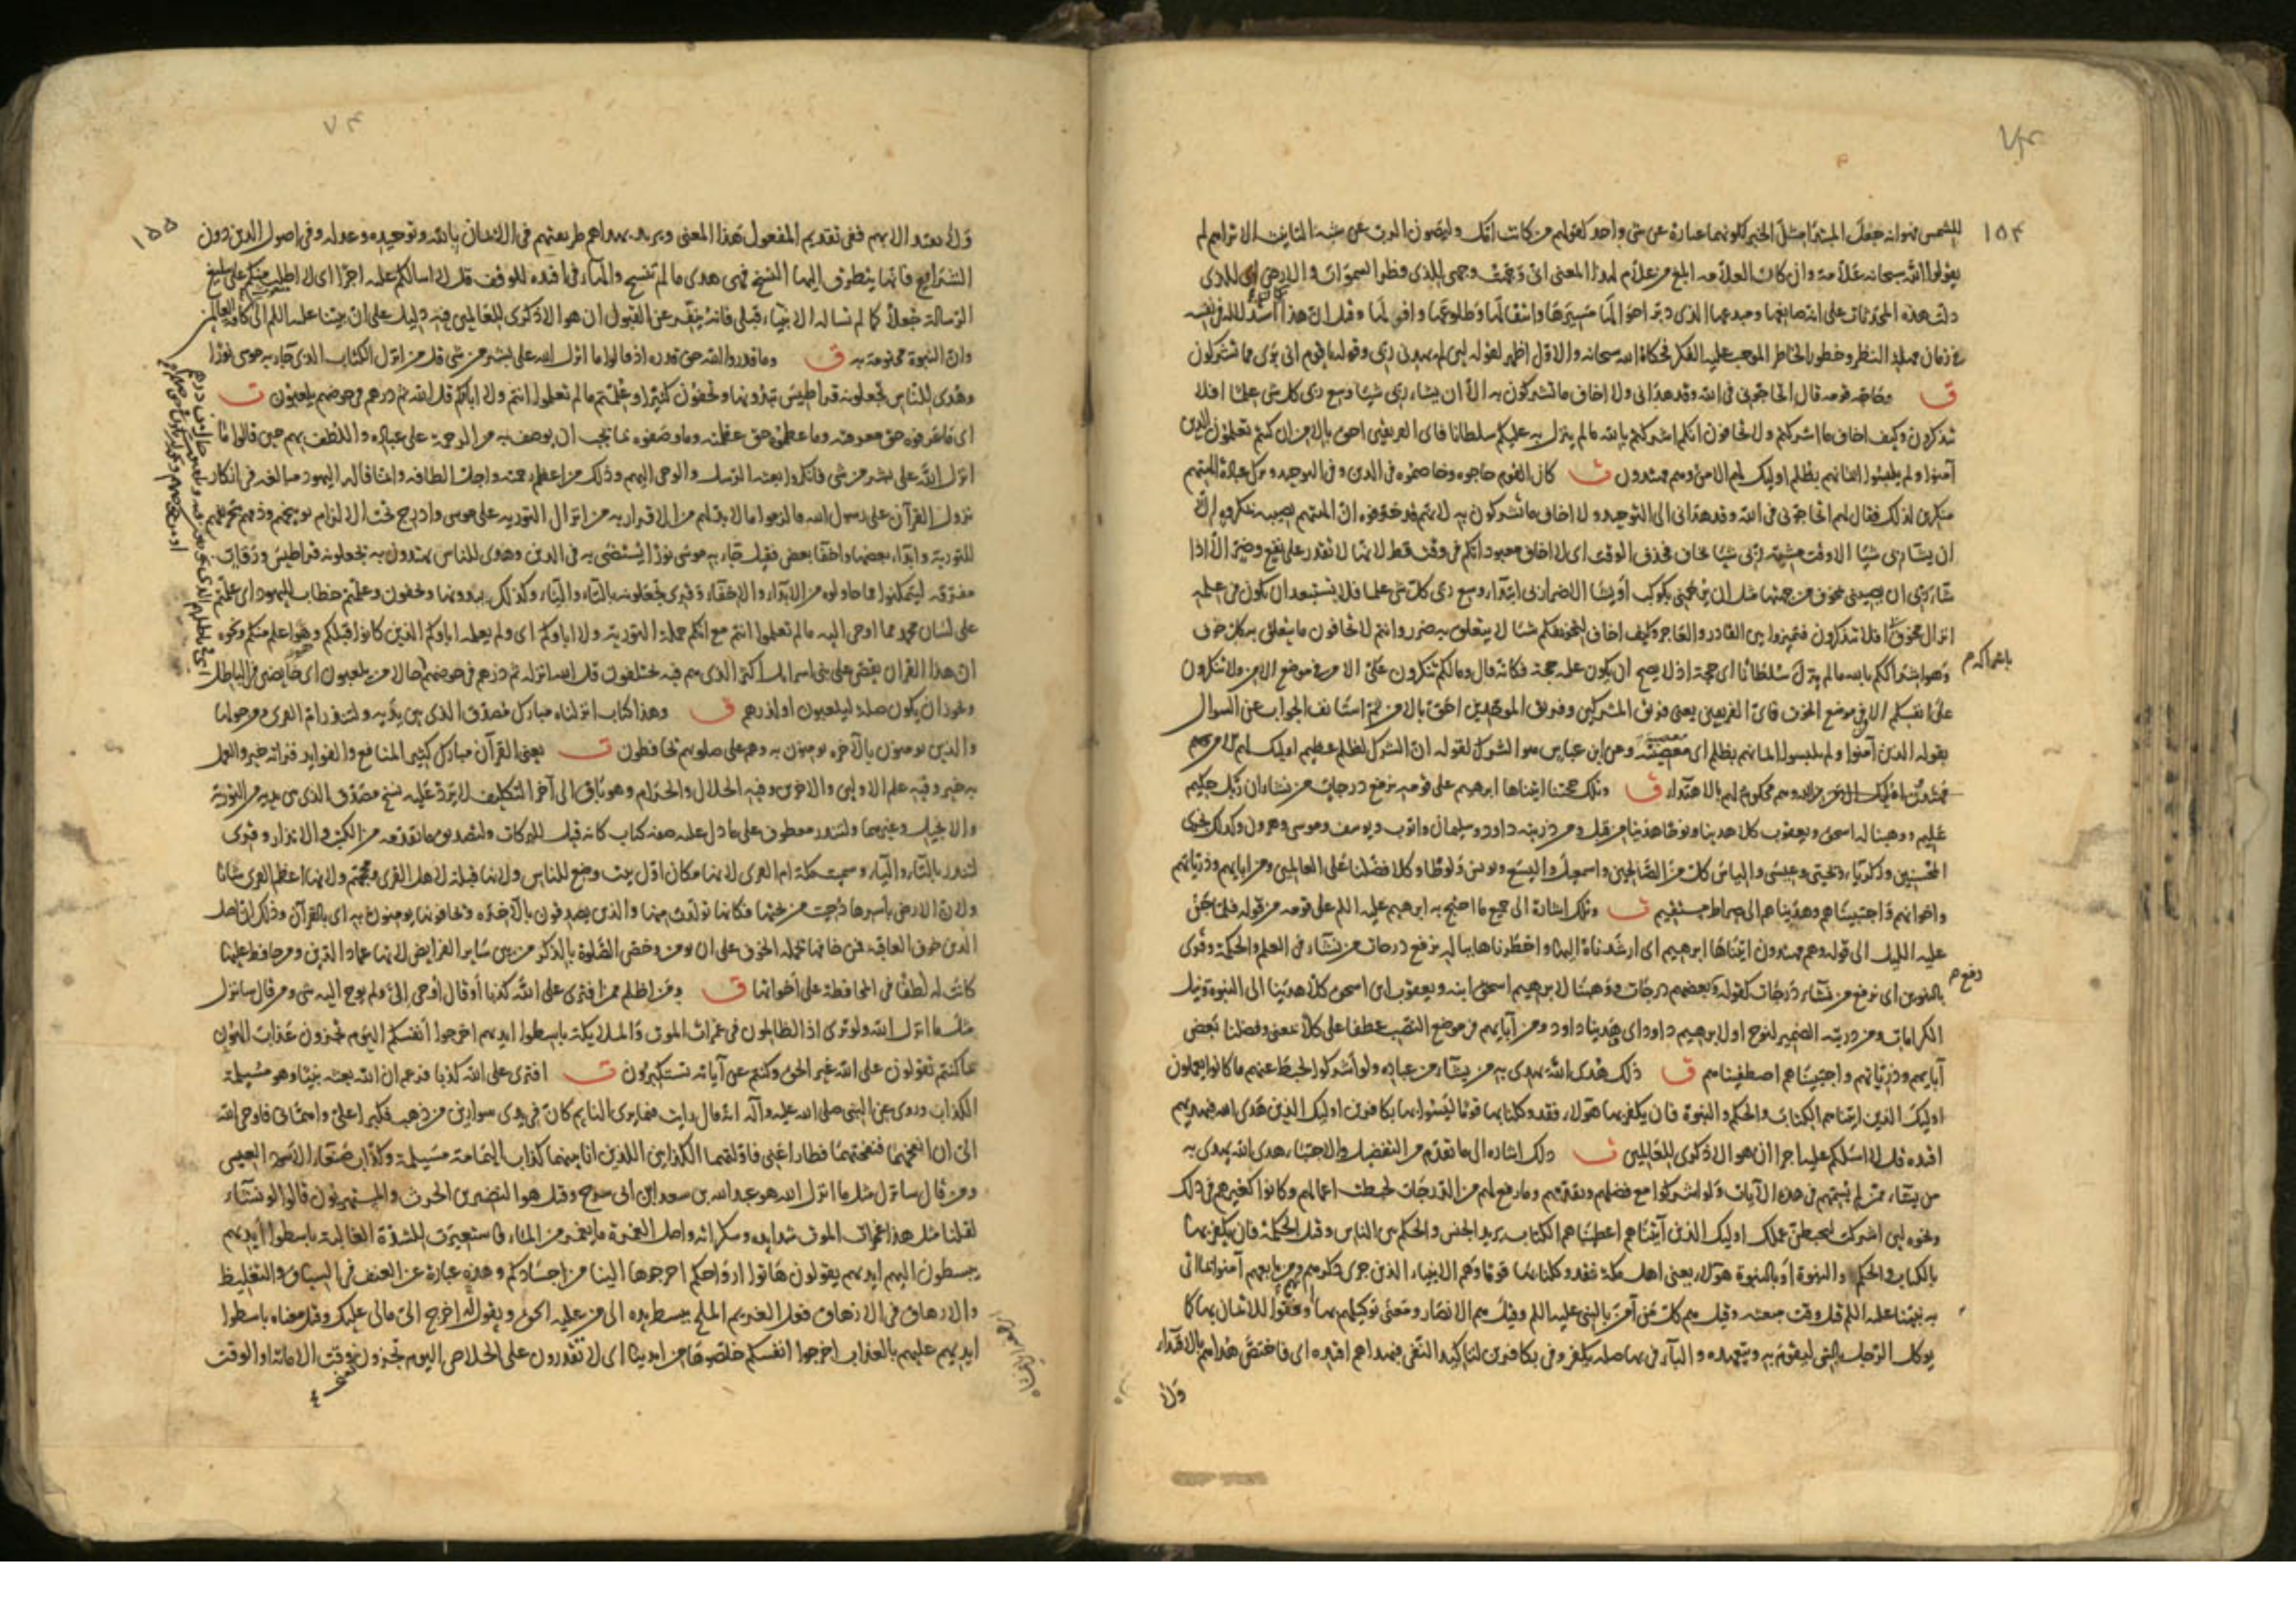 ١٥٤
للشمس فهو انه جعل المبتدا مثل الخبر لكونهما عبارة عن شئ واحد كقولهم من كانت امك وليصون الرب عن شبهة التأنيث الا تراهم لم
يقولوا الله سبحانه علامة وان كان العلامه ابلغ من علام لهذا المعنى انى وجهت وجهى للذى فطر السموات والارض اى للذى
دلت هذه المحدثات على انه صانعها ومبدعها الذى دبر احوالها مسيرها وانتقالها وطلوعها وافولها وقيل ان هذا
زمان مهلة النظر وخطور الخاطر الموجب عليه الفكر فحكاه الله سبحانه والاول اظهر لقوله لئن لم يهدنى ربى وقوله يا قوم انى برى مما تشركون
ق وحاجه قومه قال اتحاجونى فى الله وقد هدانى ولا اخاف ما تشركون به الا ان يشاء ربى شيئا وسع ربى كل شئ علما افلا
تتذكرون وكيف اخاف ما اشركتم ولا تخافون انكم اشركتم بالله ما لم ينزل به عليكم سلطانا فاى الفريقين احق بالامن ان كنتم تعلمون الذين
آمنوا ولم يلبسوا ايمانهم بظلم اوليك لهم الامن وهم مهتدون ت كان القوم حاجوه وخاصموه فى الدين وفى التوحيد وترك عبادة آلهتهم
منكرين لذلك فقال لهم اتحاجونى فى الله وقد هدانى الى التوحيد ولا اخاف ما تشركون به لانهم قد خوفوه ان آلهتهم تصيبه بمكروه الا
ان يشاء ربى شيئا الا وقت مشيئة ربى شيئا يخاف فحذف الوقت اى لا اخاف معبوداتكم فى وقت قط لانها لا تقدر على نفع وضر الا اذا
شاء ربى ان يصيبنى بمخوف من جهتها مثل ان يرجمنى بكوكب او يشأ الاضرار بى ابتداء وسع ربى كل شئ علما فلا يستبعد ان يكون فى علمه
انزال مخوف افلا تتذكرون فتميزوا بين القادر والعاجز وكيف اخاف لتخويفكم شيئا لا يتعلق به ضرر وانتم لا تخافون ما يتعلق به كل خوف
وهو اشراككم بالله ما لم ينزل سلطانا اى حجة اذ لا يصح ان يكون عليه حجة فكانه قال وما لكم تنكرون على الامن فى موضع الامن ولا تنكرون
على انفسكم الامن فى موضع الخوف فاى الفريقين يعنى فريق المشركين وفريق الموحدين احق بالامن ثم استأنف الجواب عن السوال
بقوله الذين آمنوا ولم يلبسوا ايمانهم بظلم اى معصية وعن ابن عباس هو الشرك لقوله ان الشرك لظلم عظيم اوليك لهم الامن وهم
مهتدون وهم محكوم لهم بالاهتداء ق وتلك حجتنا اتيناها ابرهيم على قومه نرفع درجات من نشاء ان ربك حكيم
عليم ووهبنا له اسحق ويعقوب كلا هدينا ونوحا هدينا من قبل ومن ذريته داود وسليمان وايوب ويوسف وموسى وهرون وكذلك نجزى
المحسنين وذكريا ويحيى وعيسى والياس كل من الصالحين واسمعيل واليسع ويونس ولوطا وكلا فضلنا على العالمين ومن ابايهم وذرياتهم
واخوانهم واجتبيناهم وهديناهم الى صراط مستقيم ت وتلك اشارة الى جميع ما احتج به ابرهيم عليه السلم على قومه من قوله فلما جن
عليه الليل الى قوله وهم مهتدون اتيناها ابرهيم اى ارشدناه اليها واخطرناها بباله نرفع درجات من نشاء فى العلم والحكمة وقرى
بالتنوين اى نرفع من نشاء درجات كقوله بعضهم درجات ووهبنا لابرهيم اسحق ابنه ويعقوب ابن اسحق كلا هدينا الى النبوة ونيل
الكرامات ومن ذريته الضمير لنوح اولابرهيم داود اى هدينا داود ومن آبايهم فى موضع النصب عطفا على كلا بمعنى وفضلنا بعض
آبايهم وذرياتهم واجتبيناهم اصطفيناهم ق ذلك هدى الله يهدى به من يشاء من عباده ولو اشركوا لحبط عنهم ما كانوا يعملون
اوليك الذين اتيناهم الكتاب والحكم والنبوة فان يكفر بها هولاء فقد وكلنا بها قوما ليسوا بها بكافرين اوليك الذين هدى الله فبهديهم
اقتده قل لا اسئلكم عليه اجرا ان هو الا ذكرى للعالمين ت ذلك اشاره الى ما تقدم من التفضيل والاجتباء هدى الله يهدى به
من يشاء ممن لم يسمهم فى هذه الآيات ولو اشركوا مع فضلهم وتقدمهم وما رفع لهم من الدرجات لحبطت اعمالهم وكانوا كغيرهم فى ذلك
ونحوه لئن اشركت ليحبطن عملك اوليك الذين آتيناهم اعطيناهم الكتاب يريد الجنس والحكم بين الناس وقيل الحكمة فان يكفر بها
بالكتاب والحكم والنبوة او بالنبوة هولاء يعنى اهل مكة فقد وكلنا بها قوما وهم الانبياء الذين جرى ذكرهم ومن تابعهم آمنوا بما اتى
به نبينا عليه السلم قبل وقت مبعثه وقيل هم كل من آمن بالنبى عليه السلم وقيل هم الانصار ومعنى توكيلهم بها انهم وفقوا للايمان بها كما
يوكل الرجل بالشى ليقوم به ويتعهده والباء فى بها صلة يكفر وفى بكافرين لتاكيد النفى فبهداهم اقتده اى فاختص هداهم بالاقتداء
ولا
١٥٥
ولا تقتد الا بهم ففى تقديم المفعول هذا المعنى ويريد بهداهم طريقتهم فى الايمان بالله وتوحيده وعدله وفى اصول الدين دون
الشرايع فانها يتطرق اليها النسخ فهى هدى ما لم تنسخ والهاء فى اقتده للوقف قل لا اسالكم عليه اجرا اى لا اطلب منكم على تبليغ
الرسالة جعلا كما لم يساله الانبياء قبلى فانه ينفر عن القبول ان هو الا ذكرى للعالمين فيه دليل على ان نبينا عليه السلم الى كافة العالمين
وان النبوة مختومة به ق وما قدروا الله حق قدره اذ قالوا ما انزل الله على بشر من شئ قل من انزل الكتاب الذى جاء به موسى نورا
وهدى للناس تجعلونه قراطيس تبدونها وتخفون كثيرا وعلمتم ما لم تعلموا انتم ولا اباؤكم قل الله ثم ذرهم فى خوضهم يلعبون ت
اى ما عرفوه حق معرفته وما عظموه حق عظمته وما وصفوه بما يجب ان يوصف به من الرحمة على عباده واللطف بهم حين قالوا ما
انزل الله على بشر من شئ فانكروا بعثة الرسل والوحى اليهم وذلك من اعظم رحمته واجل الطافه وانما قاله اليهود مبالغة فى انكار
نزول القرآن على رسول الله فالزموا ما لا بد لهم من الاقرار به من انزال التورية على موسى وادرج تحت الالزام توبيخهم وذمهم بتحريفهم
للتورية وابداء بعضها واخفاء بعض فقيل جاء به موسى نورا يستضئ به فى الدين وهدى للناس يهتدون به تجعلونه قراطيس ورقات
مفرقة ليتمكنوا مما حاولوه من الابداء والاخفاء وقرى تجعلونه بالتاء والياء وكذلك يبدونها ويخفون وعلمتم خطاب لليهود اى علمتم
على لسان محمد مما اوحى اليه ما لم تعلموا انتم مع انكم حملة التورية ولا اباؤكم اى ولم يعلمه اباؤكم الذين كانوا قبلكم وهو اعلم منكم ونحوه
ان هذا القران يقص على بنى اسرائيل اكثر الذى هم فيه يختلفون قل الله انزله ثم ذرهم فى خوضهم حالا من يلعبون اى خايضين فى الباطل
ويجوز ان يكون صلة ليلعبون او لذرهم ق وهذا كتاب انزلناه مبارك مصدق الذى بين يديه ولتنذر ام القرى ومن حولها
والذين يومنون بالآخره يومنون به وهم على صلوتهم يحافظون ت يعنى القرآن مبارك كثير المنافع والفوايد قراته خير والعمل
به خير وفيه علم الاولين والاخرين وفيه الحلال والحرام وهو باق الى آخر التكليف لا يرد عليه نسخ مصدق الذى بين يديه من التورية
والانجيل وغيرهما ولتنذر معطوف على ما دل عليه صفة كتاب كانه قيل للبركات ولتصديق ما تقدمه من الكتب والانذار وقرى
لتنذر بالتاء والياء وسميت مكة ام القرى لانها مكان اول بيت وضع للناس ولانها قبلة لاهل القرى ومحجهم ولانها اعظم القرى شانا
ولان الارض باسرها دحيت من تحتها فكانها تولدت منها والذين يصدقون بالآخرة ويخافونها يومنون به اى بالقرآن وذلك ان اصل
الدين خوف العاقبة فمن خافها يحمله الخوف على ان يومن وخص الصلوة بالذكر من بين ساير الفرايض لانها عماد الدين ومن حافظ عليها
كانت له لطفا فى المحافظة على اخواتها ق ومن اظلم ممن افترى على الله كذبا او قال اوحى الى ولم يوح اليه شئ ومن قال سانزل
مثل ما انزل الله ولو ترى اذ الظالمون فى غمرات الموت والملايكة باسطوا ايديهم اخرجوا انفسكم اليوم تجزون عذاب الهون
بما كنتم تقولون على الله غير الحق وكنتم عن آياته تستكبرون ت افترى على الله كذبا فزعم ان الله بعثه نبيا وهو مسيلمة
الكذاب وروى عن النبى صلى الله عليه وآله انه قال رايت فيما يرى النايم كان فى يدى سوارين من ذهب فكبرا على واهمانى فاوحى الله
الى ان انفخهما فنفختهما فطارا عنى فاولتهما الكذابين اللذين انا بينهما كذاب اليمامة مسيلمة وكذاب صنعاء الاسود العنسى
ومن قال سانزل مثل ما انزل الله هو عبد الله بن سعد ابن ابى سرح وقيل هو النضر بن الحرث والمستهزئون قالوا لو نشاء
لقلنا مثل هذا غمرات الموت شدايده وسكراته واصل الغمرة ما يغمر من الماء فاستعيرت للشدة الغالبة باسطوا ايديهم
يبسطون اليهم ايديهم يقولون هاتوا ارواحكم اخرجوها الينا من اجسادكم وهذه عبارة عن العنف فى السياق والتغليظ
والارهاق فى الازهاق فعل الغريم الملح يبسط يده الى من عليه الحق ويقول له اخرج الى ما لى عليك وقيل معناه باسطوا
ايديهم عليهم بالعذاب اخرجوا انفسكم خلصوها من ايدينا اى لا تقدرون على الخلاص اليوم تجزون وقت الاماتة او الوقت